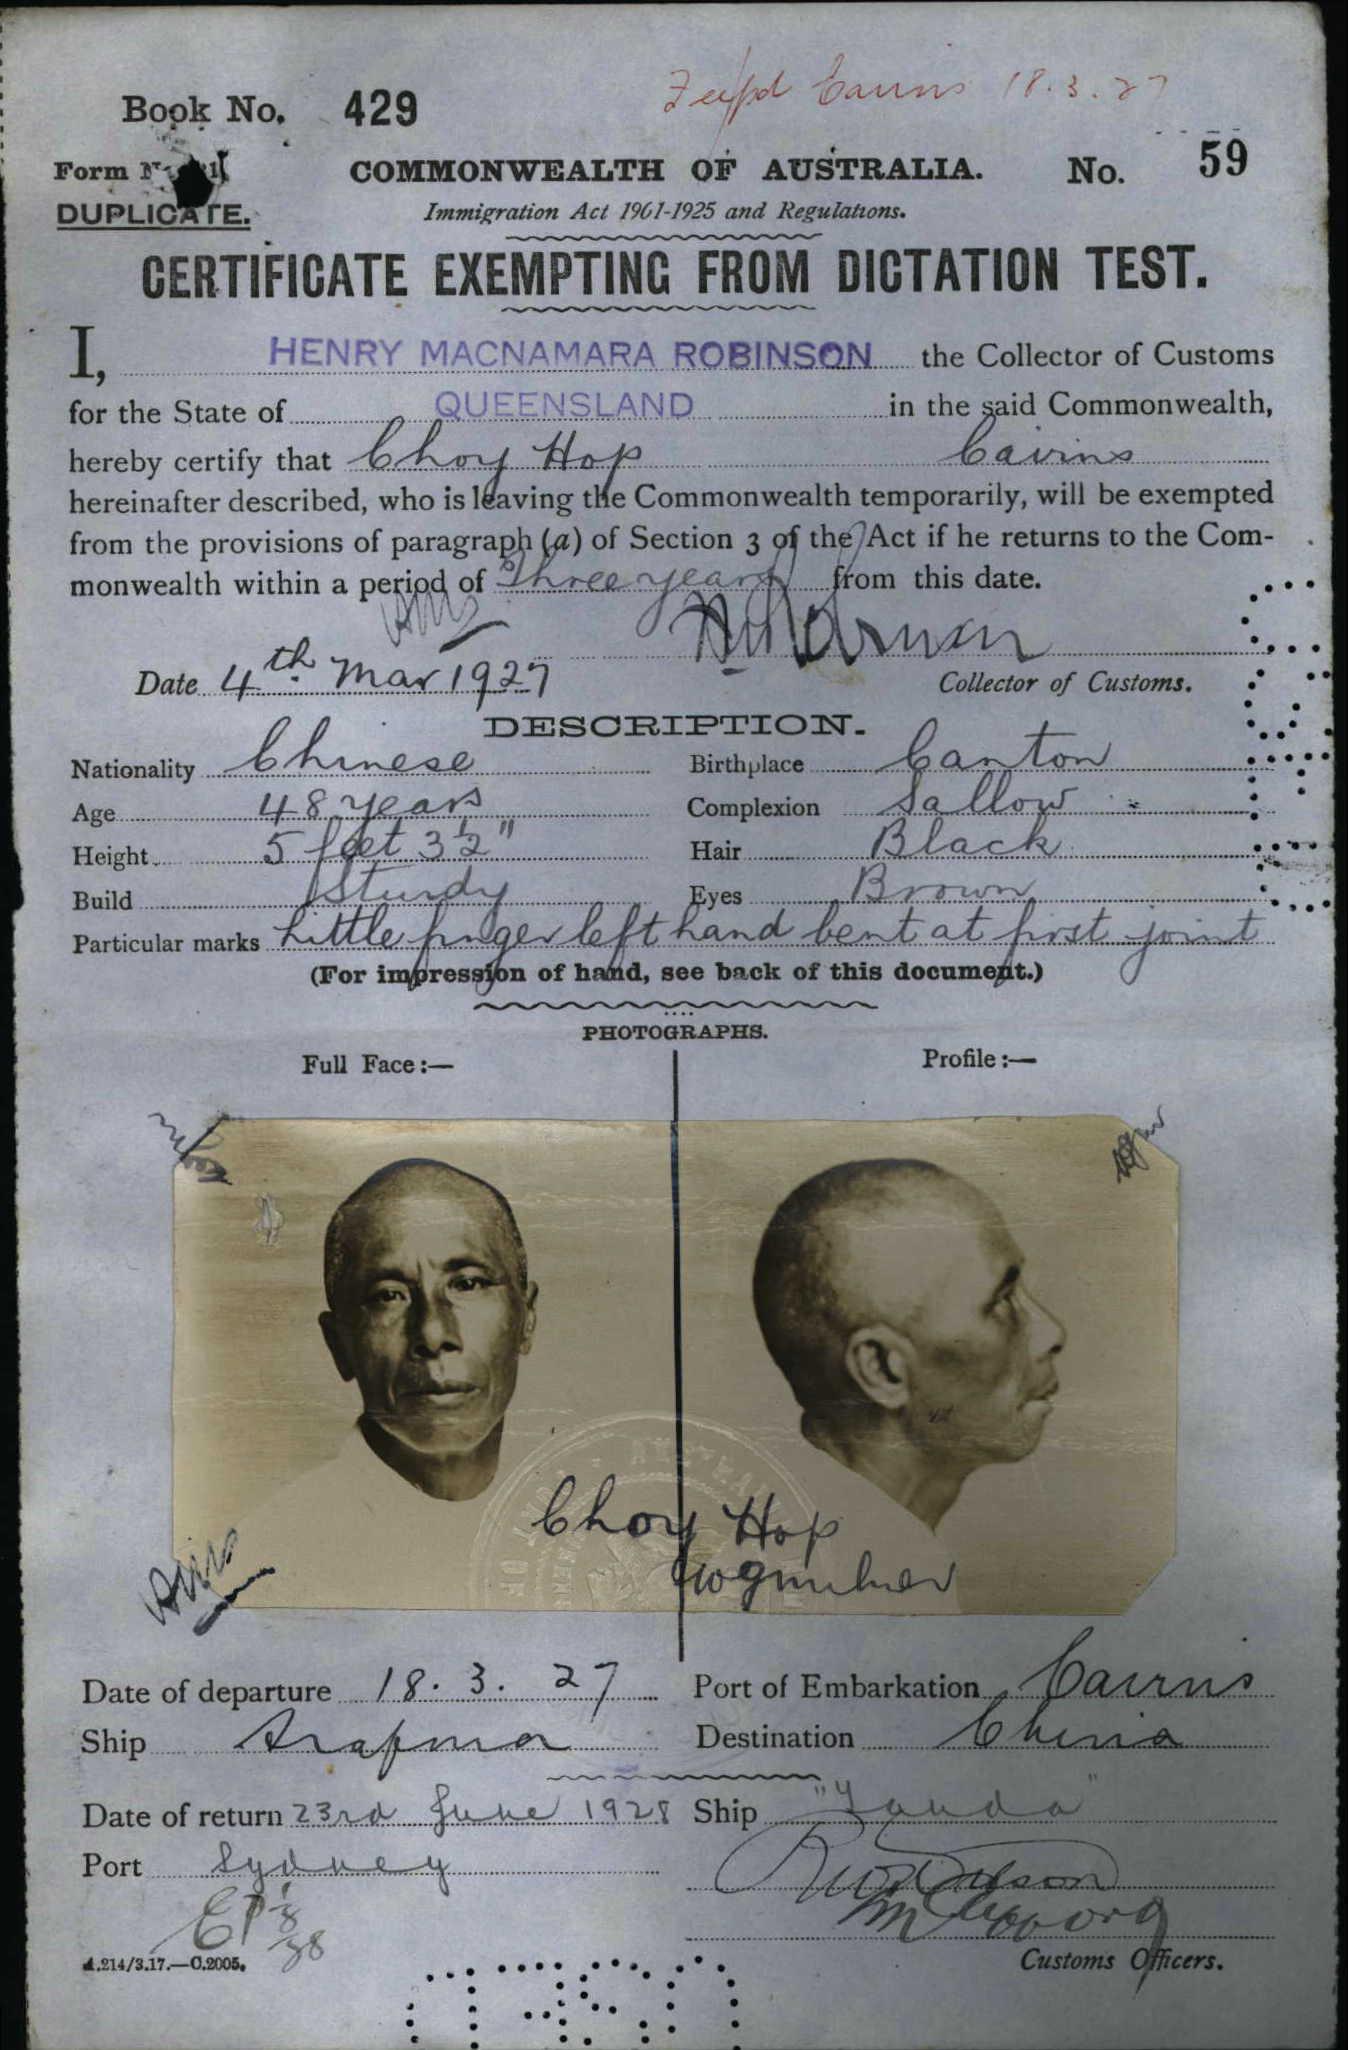 Book No. 429
Cairns 18.3.27
Form No. 21
DUPLICATE.
COMMONWEALTH OF AUSTRALIA. No. 59
Immigration Act 1901-1925 and Regulations.
CERTIFICATE EXEMPTING FROM DICTATION TEST.
I, HENRY MACNAMARA ROBINSON the Collector of Customs
for the State of QUEENSLAND in the said Commonwealth,
hereby certify that Choy Hop Cairns
hereinafter described, who is leaving the Commonwealth temporarily, will be exempted
from the provisions of paragraph (a) of Section 3 of the Act if he returns to the Com-
monwealth within a period of Three years from this date.
Date 4th Mar 1927
Collector of Customs.
DESCRIPTION.
Nationality Chinese Birthplace Canton
Age 48 years Complexion Sallow
Height 5 feet 3½" Hair Black
Build Sturdy Eyes Brown
Particular marks Little finger left hand bent at first joint
(For impression of hand, see back of this document.)
PHOTOGRAPHS.
Full Face:— Profile:—
Choy Hop
Date of departure 18. 3. 27 Port of Embarkation Cairns
Ship Arafura Destination China
Date of return 23rd June 1928 Ship "Tanda"
Port Sydney
A.214/3.17.—C.2005.
Customs Officers.